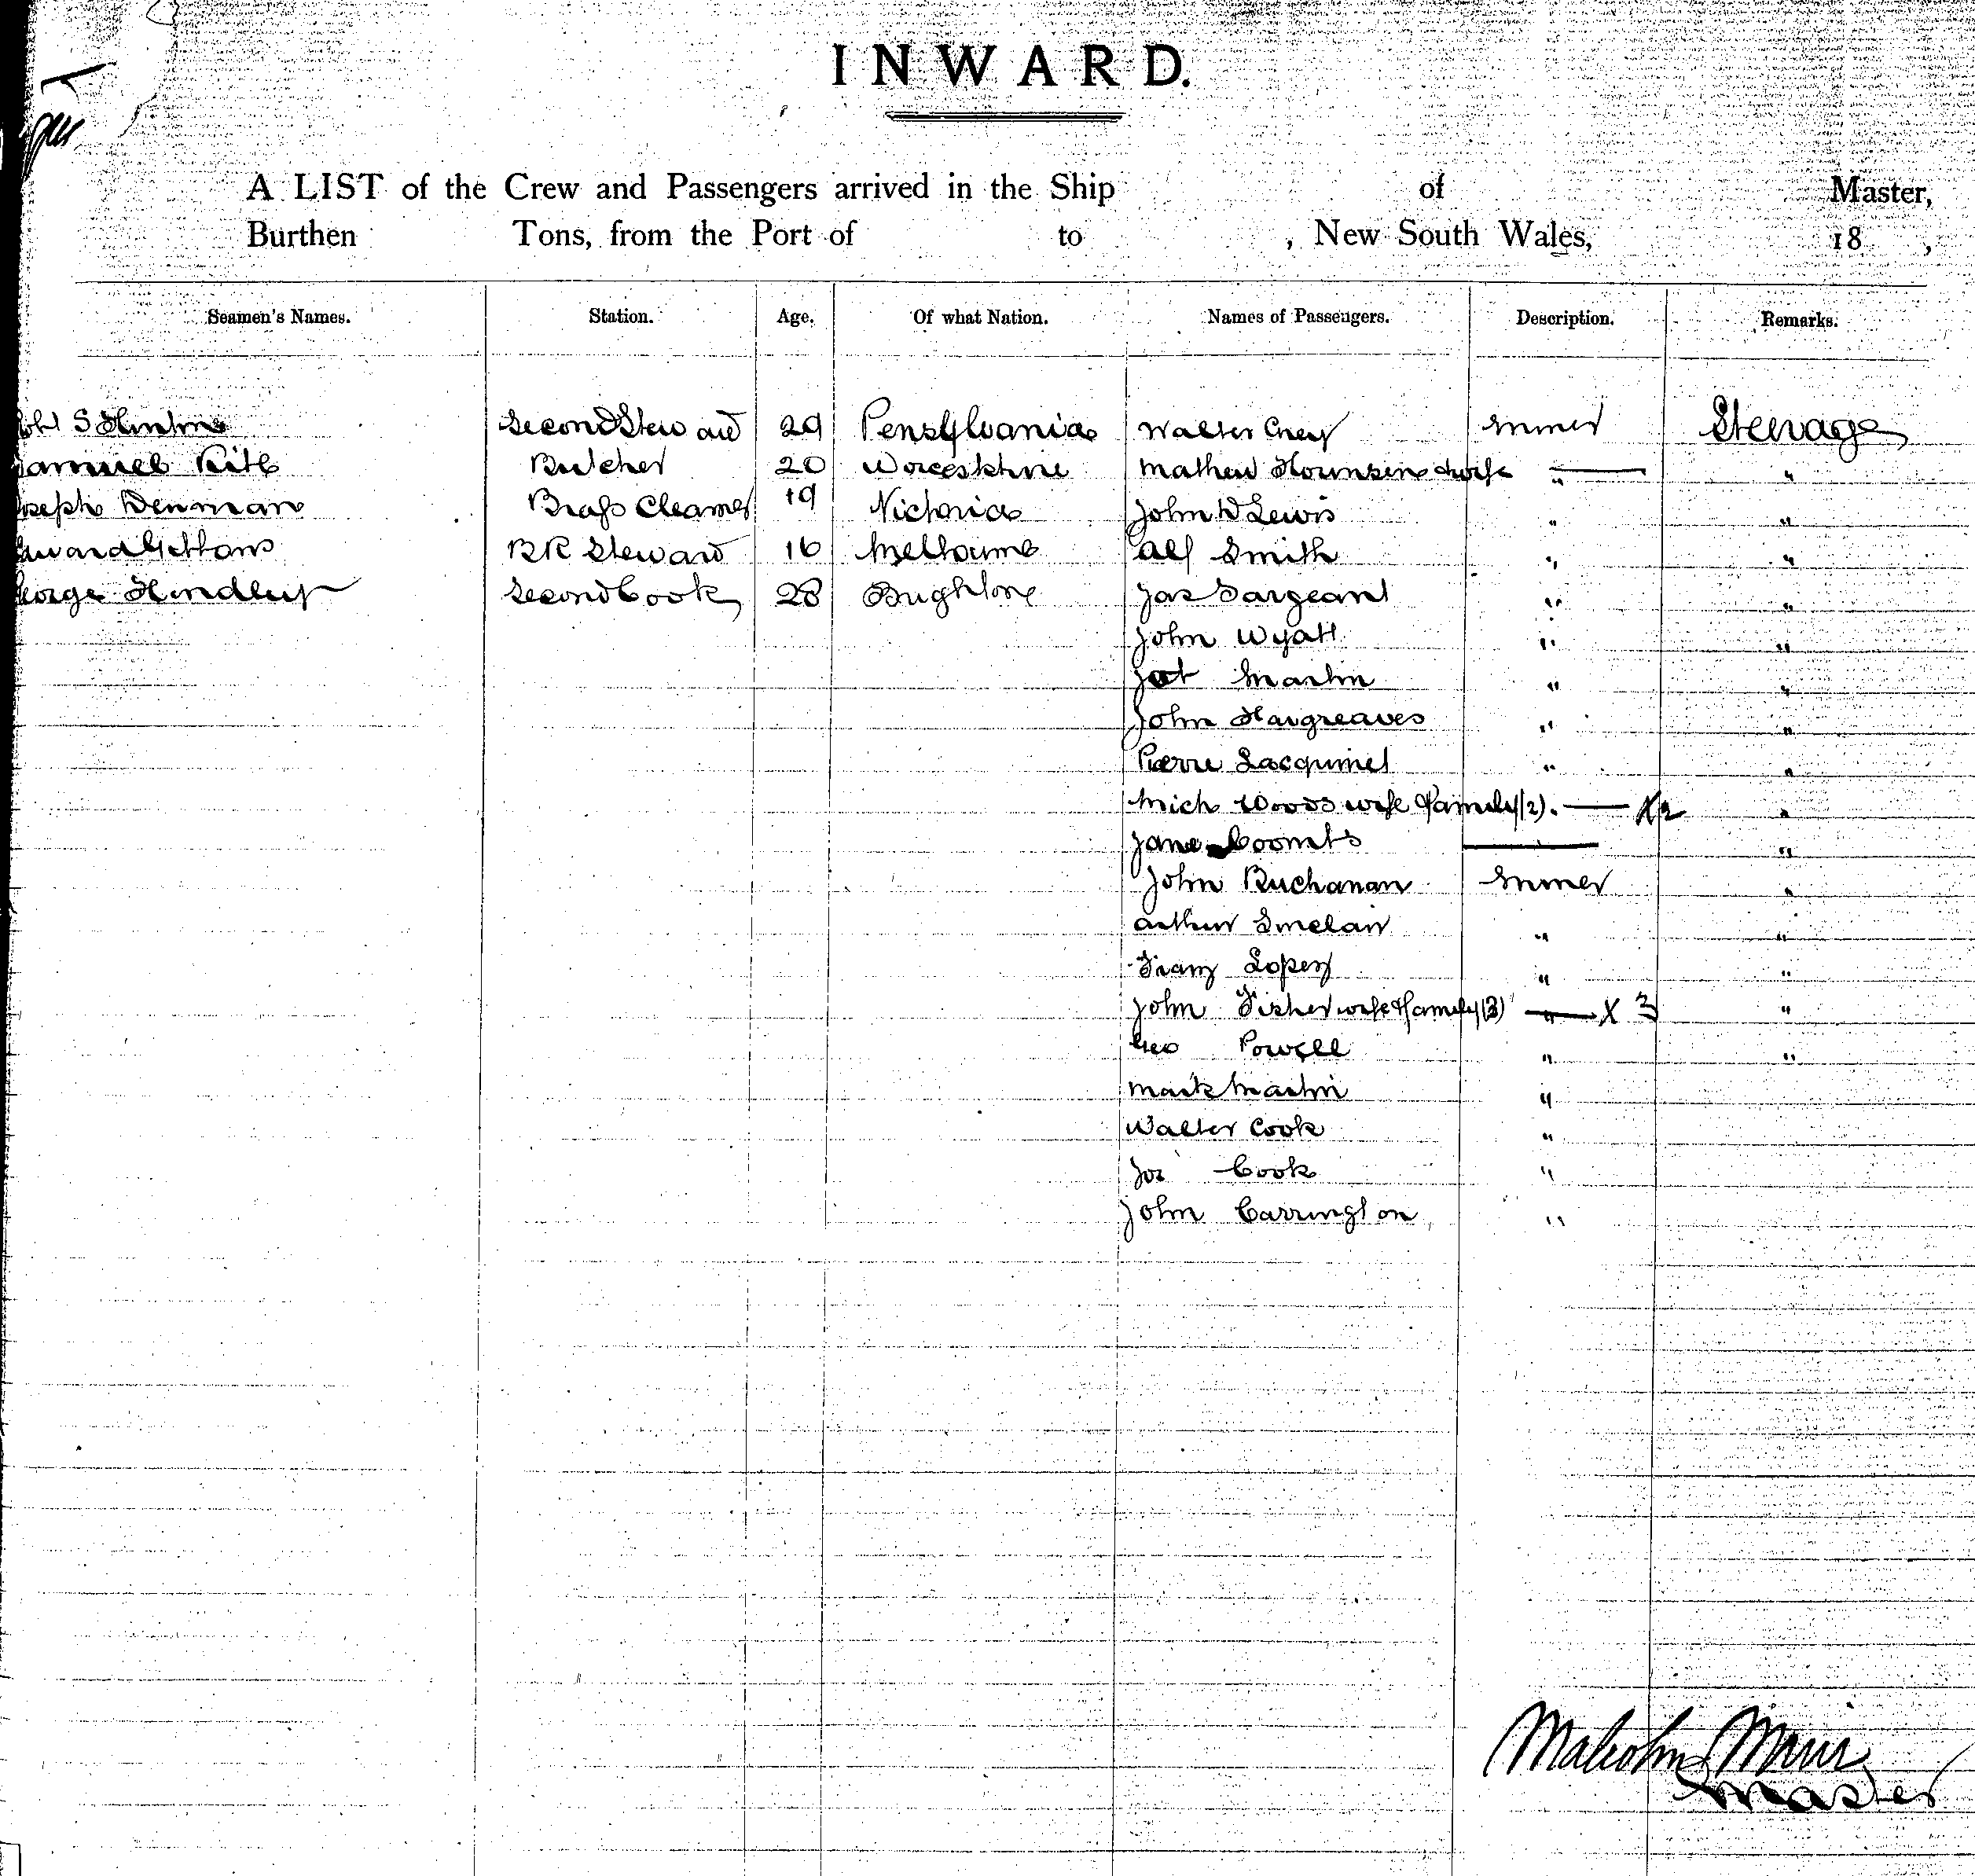 INWARD.
A LIST of the Crew and Passengers arrived in the Ship of Master,
Burthen Tons, from the Port of to , New South Wales, 18 ,
Seamen's Names. Station. Age. Of what Nation. Names of Passengers. Description. Remarks.
Second Steward 29 Pensylvania Walter Miner Steerage
Samuel Butcher 20 Mathew & wife " "
Joseph Denman Brass Cleaner 19 Victoria John D Lewis " "
Edward Gittons BR Steward 16 Melbourne Alf Smith " "
George Hindley Second Cook 28 Brighton Jas Sargeant " "
John Wyatt " "
Martin " "
John Hargreaves " "
Pierre " "
Mich Woods wife & family (2). X 2 "
Jane Coombs "
John Buchanan Miner "
Arthur Sinclair " "
Franz Lopez " "
John Fisher wife & family (3) " X 3 "
Geo Powell " "
Mark Martin "
Walter Cook "
Jos Cook "
John Carrington "
Malcolm Muir
Master